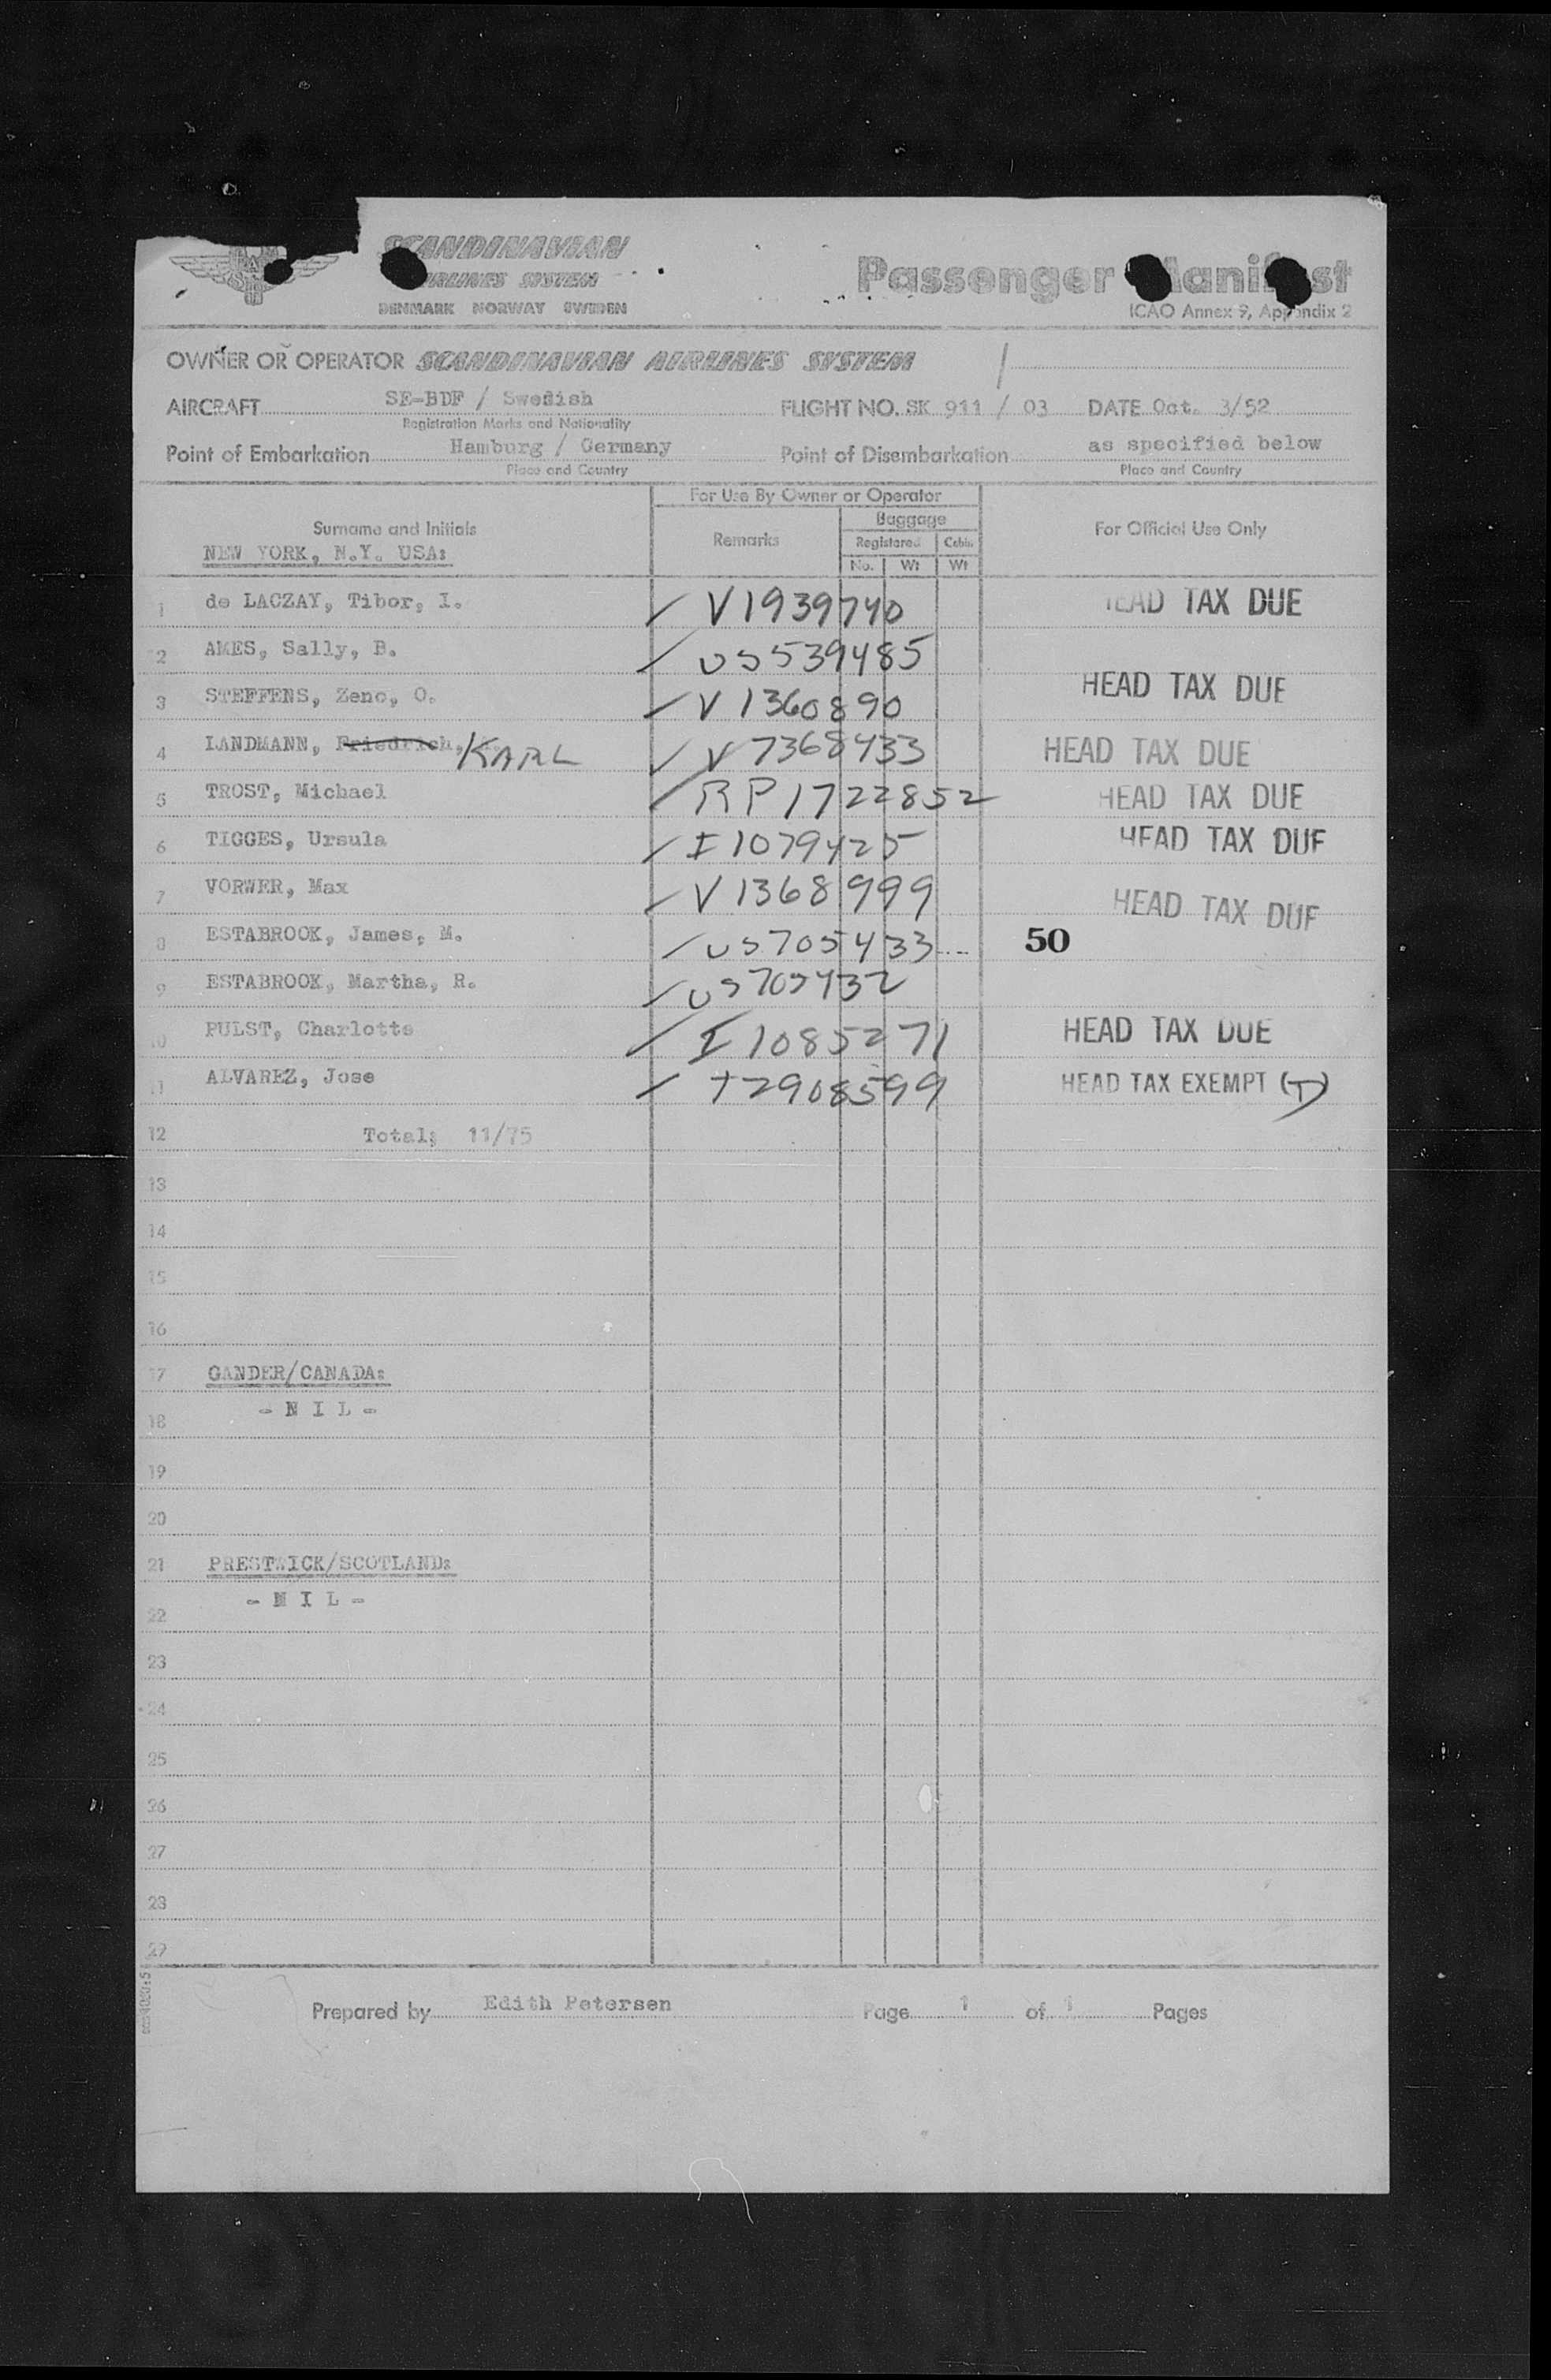 SCANDINAVIAN
AIRLINES SYSTEM
DENMARK NORWAY SWEDEN
Passenger Manifest
ICAO Annex 9, Appendix 2
OWNER OR OPERATOR SCANDINAVIAN AIRLINES SYSTEM
AIRCRAFT SE-BDF / Swedish FLIGHT NO. SK 911 / 03 DATE Oct. 3/52
Registration Marks and Nationality
Point of Embarkation Hamburg / Germany Point of Disembarkation as specified below
Place and Country Place and Country
For Use By Owner or Operator
Surname and Initials Remarks Baggage For Official Use Only
Registered Cabin
NEW YORK, N.Y. USA:
No. Wt Wt
1 de LACZAY, Tibor, I. V1939740 HEAD TAX DUE
2 AMES, Sally, B. US539485
3 STEFFENS, Zeno, O. V1360890 HEAD TAX DUE
4 LANDMANN, Friedrich, KARL V7368433 HEAD TAX DUE
5 TROST, Michael RP1722852 HEAD TAX DUE
6 TIGGES, Ursula I1079425 HEAD TAX DUE
7 VORWER, Max V1368999 HEAD TAX DUE
8 ESTABROOK, James, M. US705433 50
9 ESTABROOK, Martha, R. US705432
10 PULST, Charlotte I1085271 HEAD TAX DUE
11 ALVAREZ, Jose T2908599 HEAD TAX EXEMPT (T)
12 Total: 11/75
13
14
15
16
17 GANDER/CANADA:
18 - N I L -
19
20
21 PRESTWICK/SCOTLAND:
22 - N I L -
23
24
25
26
27
28
29
Prepared by Edith Petersen Page 1 of 1 Pages